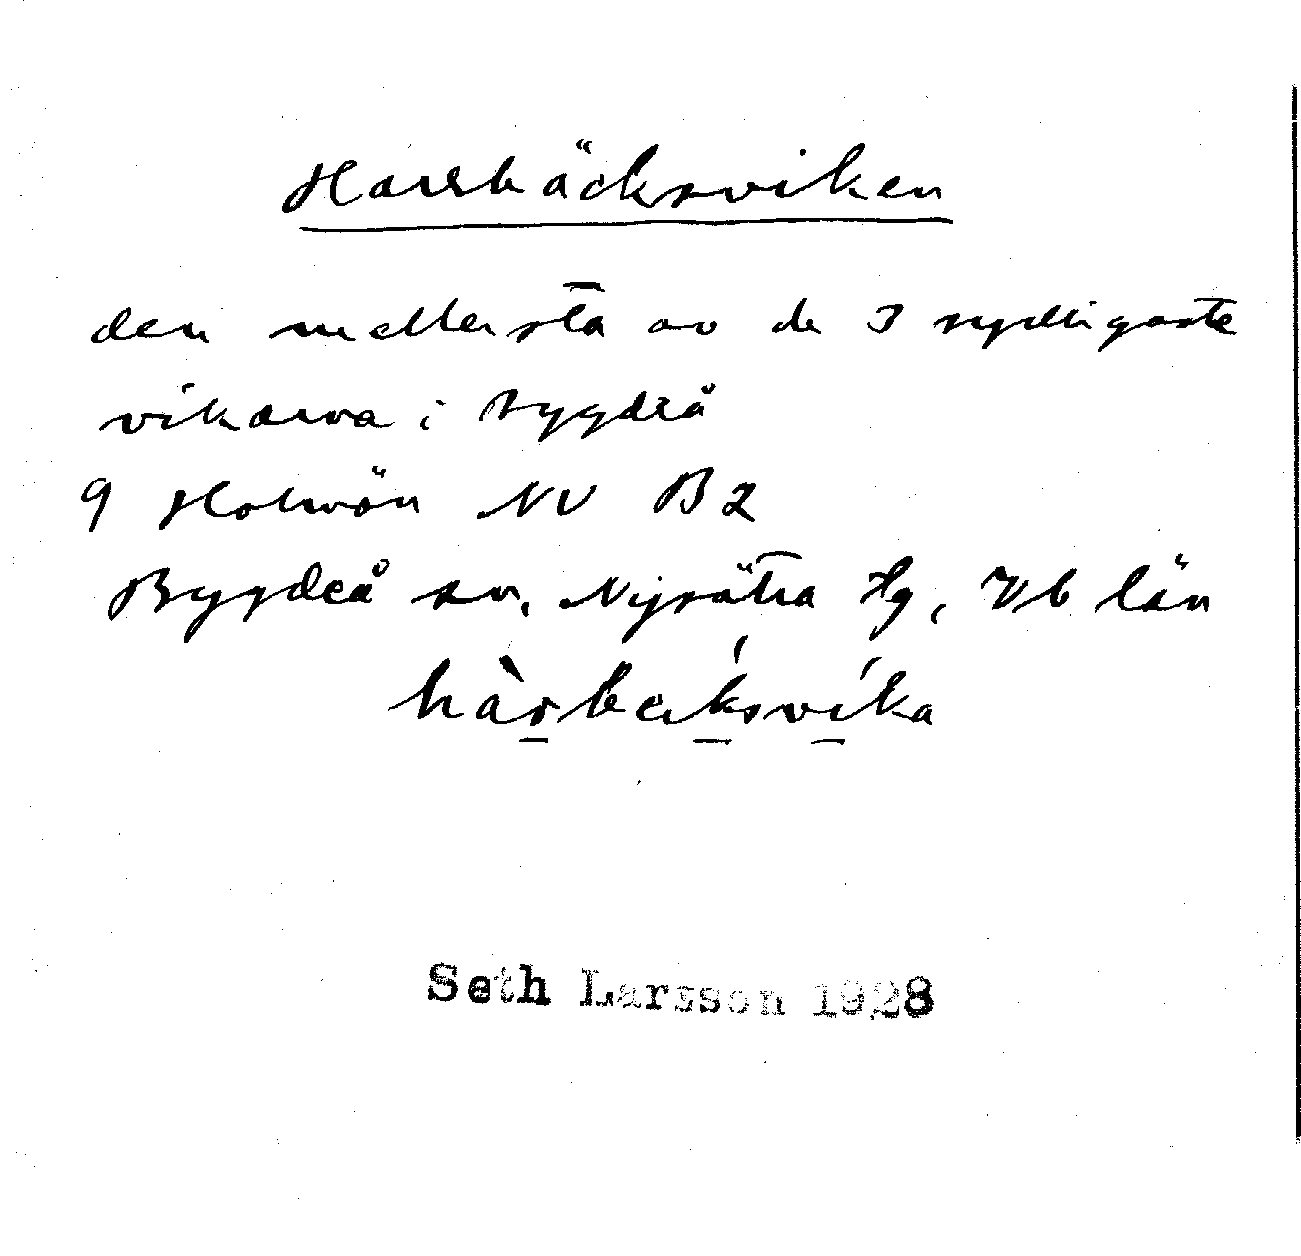 Harrbäcksviken
den mellersta av de 3 sydligaste
vikarna i Bygdeå
9 Holmön NV B2
Bygdeå sn, Nysätra tg, Vb län
Seth Larsson 1928